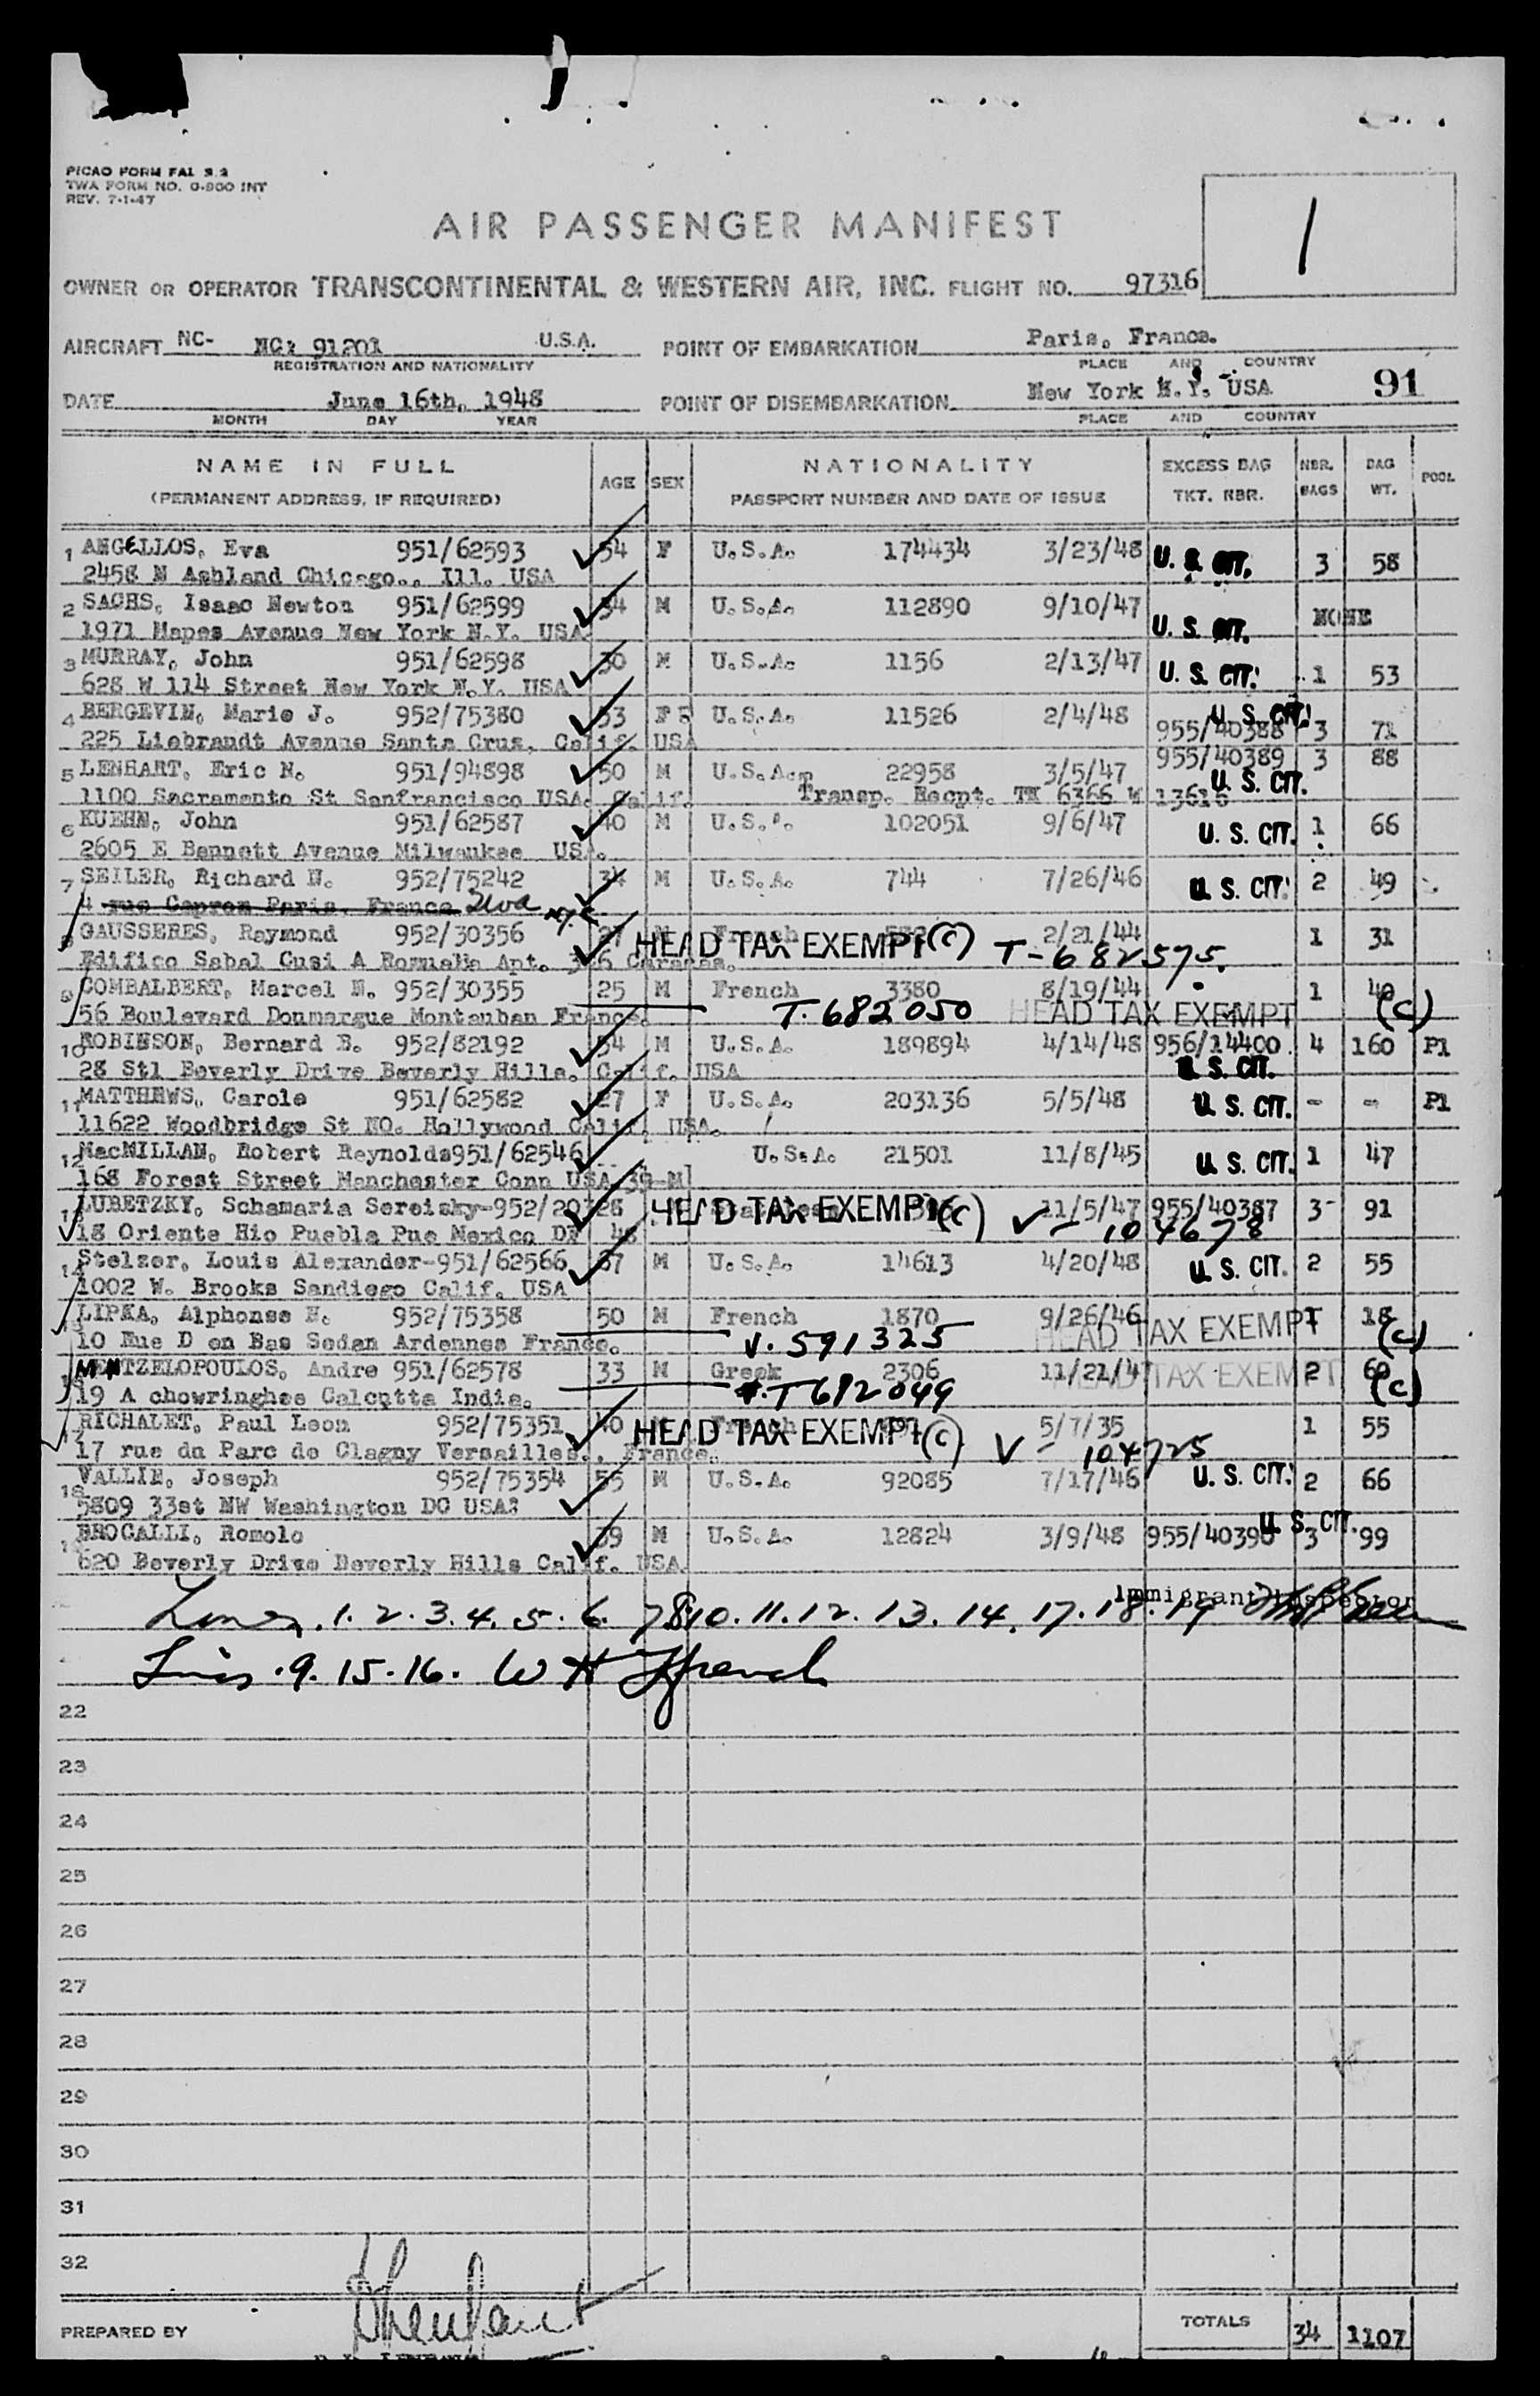 PICAO FORM FAL 3.2
TWA FORM NO. O-900 INT
REV. 7-1-47
AIR PASSENGER MANIFEST
1
OWNER OR OPERATOR TRANSCONTINENTAL & WESTERN AIR, INC. FLIGHT NO. 97316
AIRCRAFT NC- NC: 91201 U.S.A. POINT OF EMBARKATION Paris, France.
REGISTRATION AND NATIONALITY PLACE AND COUNTRY
DATE June 16th, 1948 POINT OF DISEMBARKATION New York N.Y. USA 91
MONTH DAY YEAR PLACE AND COUNTRY
NAME IN FULL AGE SEX NATIONALITY EXCESS BAG NBR. BAG POOL
(PERMANENT ADDRESS, IF REQUIRED) PASSPORT NUMBER AND DATE OF ISSUE TKT. NBR. BAGS WT.
1 ANGELLOS, Eva 951/62593 54 F U.S.A. 174434 3/23/48 U. S. CIT. 3 58
2458 N Ashland Chicago., Ill. USA
2 SACHS, Isaac Newton 951/62599 34 M U.S.A. 112890 9/10/47 U. S. CIT. NONE
1971 Mapes Avenue New York N.Y. USA.
3 MURRAY, John 951/62598 30 M U.S.A. 1156 2/13/47 U. S. CIT. 1 53
628 W 114 Street New York N.Y. USA
4 BERGEVIN, Marie J. 952/75380 53 F U.S.A. 11526 2/4/48 U. S. CIT. 955/40388 3 71
225 Liebrandt Avenue Santa Cruz, Calif. USA
5 LENHART, Eric N. 951/94898 50 M U.S.A. 22958 3/5/47 955/40389 3 88
1100 Sacramento St Sanfrancisco USA. Calif. Transp. Recpt. TK 6366 W 13616 U. S. CIT.
6 KUEHN, John 951/62587 40 M U.S.A. 102051 9/6/47 U. S. CIT. 1 66
2605 E Bennett Avenue Milwaukee USA.
7 SEILER, Richard N. 952/75242 34 M U.S.A. 744 7/26/46 U. S. CIT. 2 49
4 rue Capron Paris, France
8 GAUSSERES, Raymond 952/30356 27 French HEAD TAX EXEMPT (C) 2/21/44 T-682575. 1 31
Edifico Sabal Cusi A Romualda Apt. 306 Caracas.
9 COMBALBERT, Marcel N. 952/30355 25 M French 3380 8/19/44 1 40
56 Boulevard Doumargue Montauban France. T-682050 HEAD TAX EXEMPT (C)
10 ROBINSON, Bernard B. 952/82192 54 M U.S.A. 189894 4/14/48 956/14400 4 160 P1
28 Stl Beverly Drive Beverly Hills. Calif. USA U. S. CIT.
11 MATTHEWS, Carole 951/62582 27 F U.S.A. 203136 5/5/48 U. S. CIT. - - P1
11622 Woodbridge St NO. Hollywood Calif. USA.
12 MacMILLAN, Robert Reynolds951/62546 U.S.A. 21501 11/8/45 U. S. CIT. 1 47
168 Forest Street Manchester Conn USA 39-M
LUBETZKY, Schamaria Sereisky-952/20328 HEAD TAX EXEMPT (C) 11/5/47 955/40387 3 91
18 Oriente Hio Puebla Pue Mexico DF 48 V - 104678
14 Stelzer, Louis Alexander-951/62566 67 M U.S.A. 14613 4/20/48 U. S. CIT. 2 55
1002 W. Brooks Sandiego Calif. USA
LIPKA, Alphonse H. 952/75358 50 M French 1870 9/26/46 1 18
10 Rue D en Bas Sedan Ardennes France. V. 591325 HEAD TAX EXEMPT (C)
MENTZELOPOULOS, Andre 951/62578 33 M Greek 2306 11/21/4 2 60
19 A chowringhee Calcutta India. T682049 HEAD TAX EXEMPT (C)
17 RICHALET, Paul Leon 952/75351 40 French HEAD TAX EXEMPT (C) 5/7/35 1 55
17 rue du Parc de Clagny Versailles., France. V - 104725
18 VALLIE, Joseph 952/75354 55 M U.S.A. 92085 7/17/46 U. S. CIT. 2 66
5809 33st NW Washington DC USA:
BROCALLI, Romolo 39 M U.S.A. 12824 3/9/48 955/40390 U. S. CIT. 3 99
620 Beverly Drive Beverly Hills Calif. USA.
Lines. 1. 2. 3. 4. 5. 6. 7 8 10. 11. 12. 13. 14. 17. 18. 19 Immigrant Inspector
Lines. 9. 15. 16. W H Ffrench
22
23
24
25
26
27
28
29
30
31
32
PREPARED BY TOTALS 34 1107